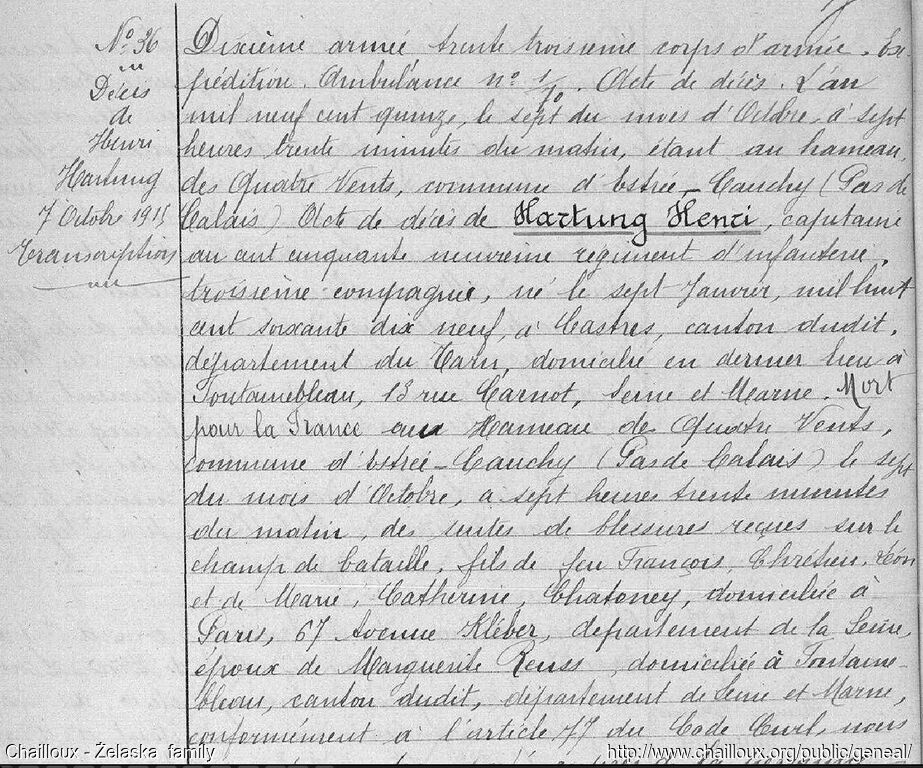 N° 36
Décès
de
Henri
Hartung
7 Octobre 1915
Transcription
Dixième armée trente troisième corps d'armée. Ex
pédition. Ambulance n° 1/10. Acte de décès. L'an
mil neuf cent quinze, le sept du mois d'Octobre, à sept
heures trente minutes du matin, étant au hameau
des Quatre Vents, commune d'Estrée-Cauchy (Pas de
Calais) Acte de décès de Hartung Henri, capitaine
au cent cinquante neuvième régiment d'infanterie,
troisième compagnie, né le sept Janvier, mil huit
cent soixante dix neuf, à Castres, canton dudit,
département du Tarn, domicilié en dernier lieu à
Fontainebleau, 13 rue Carnot, Seine et Marne. Mort
pour la France au Hameau de Quatre Vents,
commune d'Estrée-Cauchy (Pas de Calais) le sept
du mois d'Octobre, à sept heures trente minutes
du matin, des suites de blessures reçues sur le
champ de bataille, fils de feu François, Chrétien, Léon
et de Marie, Catherine, Chatoney, domiciliée à
Paris, 67 Avenue Kléber, département de la Seine,
époux de Marguerite Reuss, domiciliée à Fontaine-
bleau, canton dudit, département de Seine et Marne,
conformément à l'article 77 du Code Civil, nous
Chailloux - Żelaska family
http://www.chailloux.org/public/geneal/